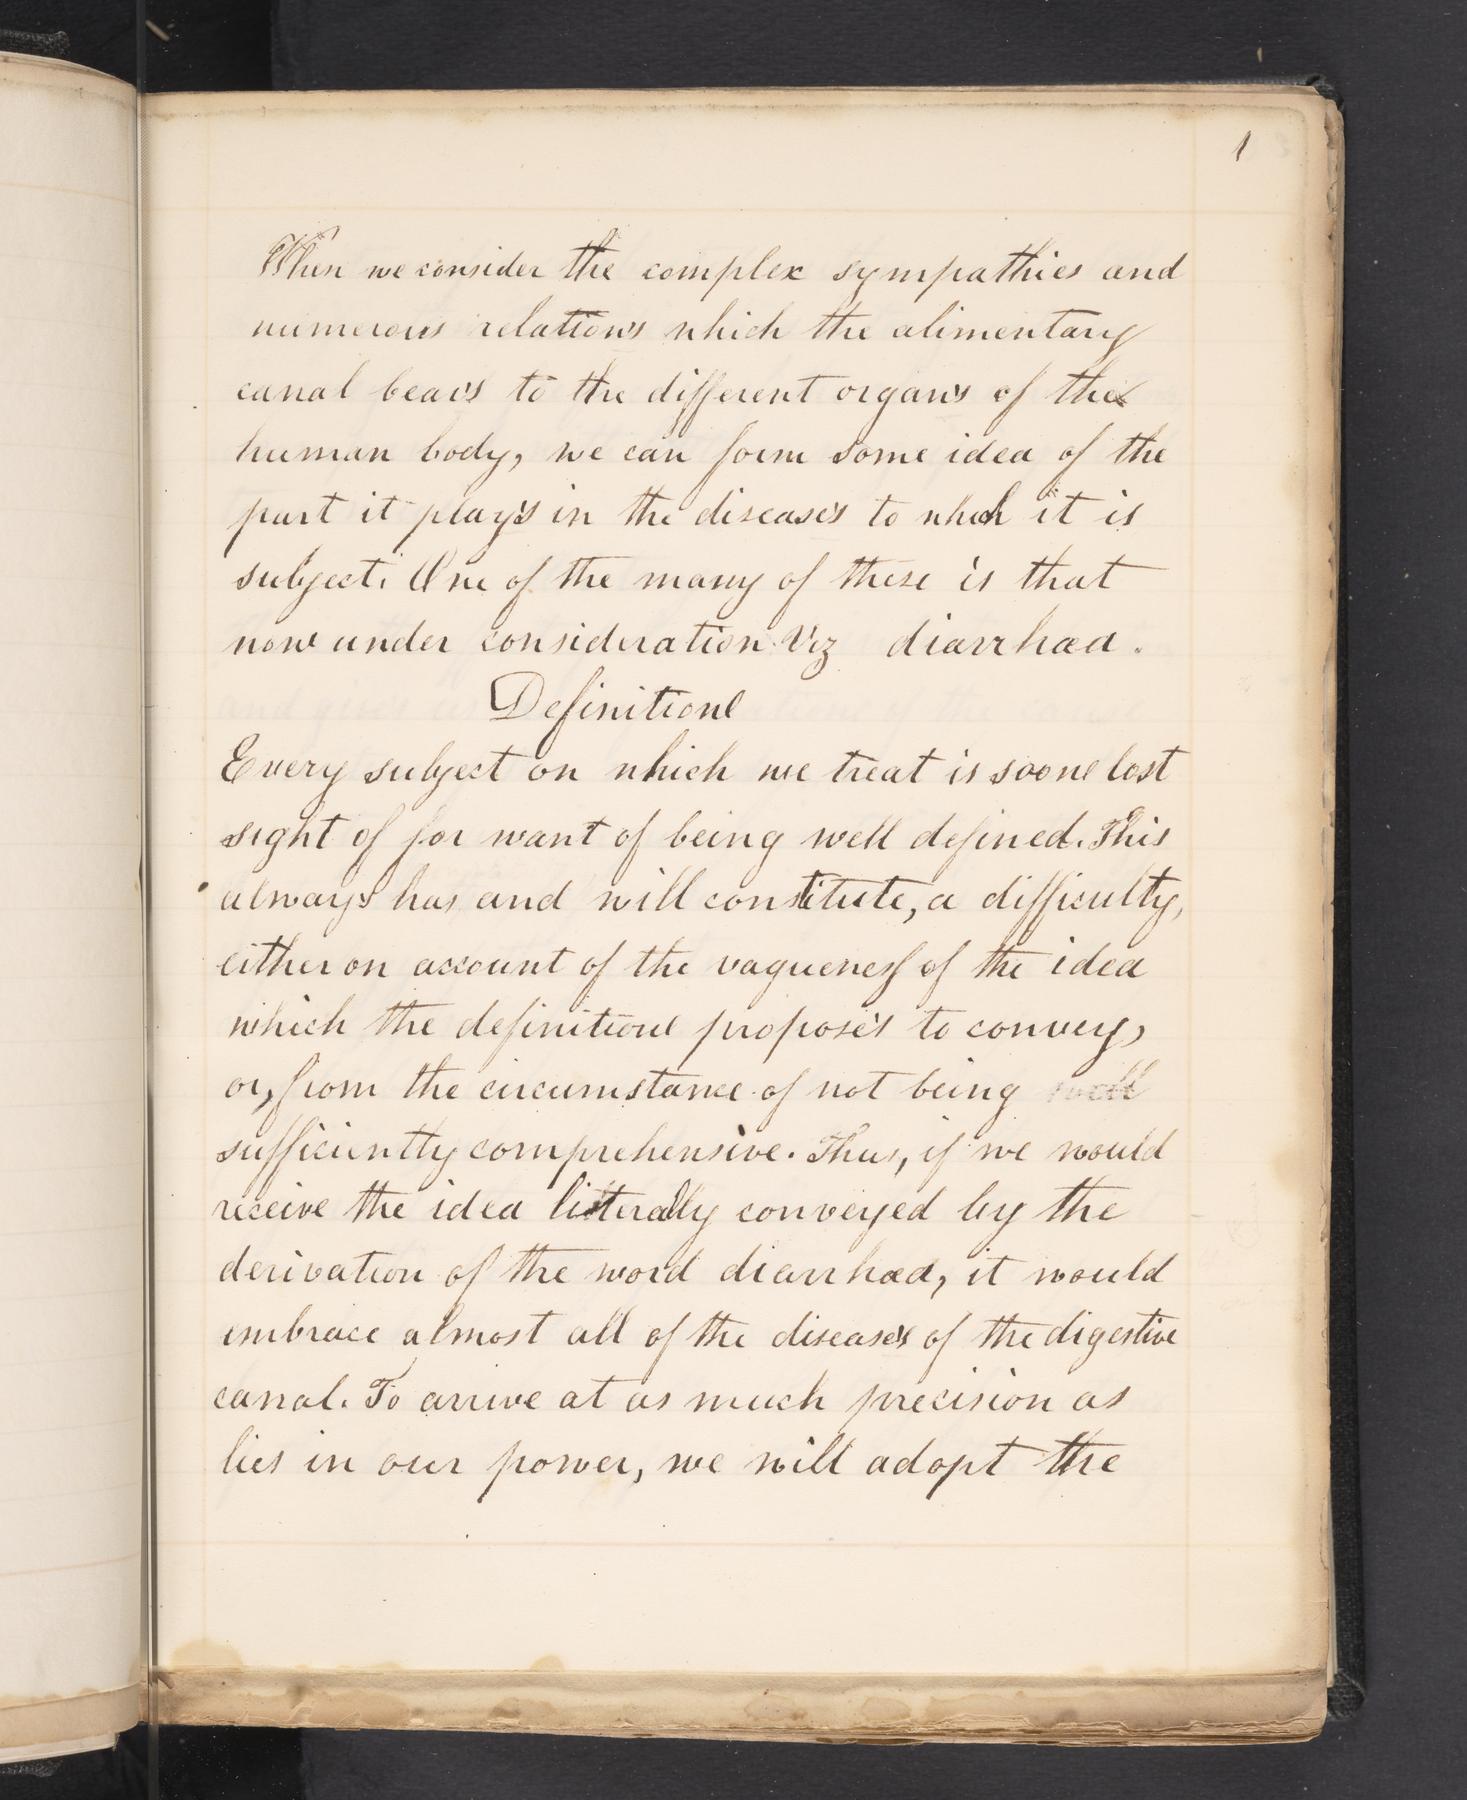 1
When we consider the complex sympathies and
numerous relations which the alimentary
canal bears to the different organs of the
human body, we can form some idea of the
part it plays in the diseases to which it is
subject. One of the many of these is that
now under consideration Viz diarrhœa.
Definition
Every subject on which we treat is soone lost
sight of for want of being well defined. This
always has and will constitute, a difficulty,
either on account of the vagueness of the idea
which the definition proposes to convey,
or, from the circumstance of not being well
sufficiently comprehensive. Thus, if we would
receive the idea litterally conveyed by the
derivation of the word diarrhœa, it would
embrace almost all of the diseases of the digestive
canal. To arrive at as much precision as
lies in our power, we will adopt the